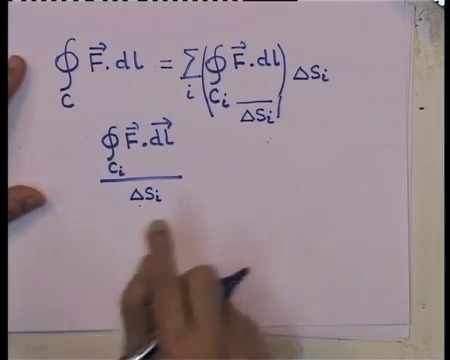 ∮_C F⃗.dl = Σ_i (∮_{C_i} F⃗.dl / ΔS_i) ΔS_i
∮_{C_i} F⃗.d⃗l / ΔS_i